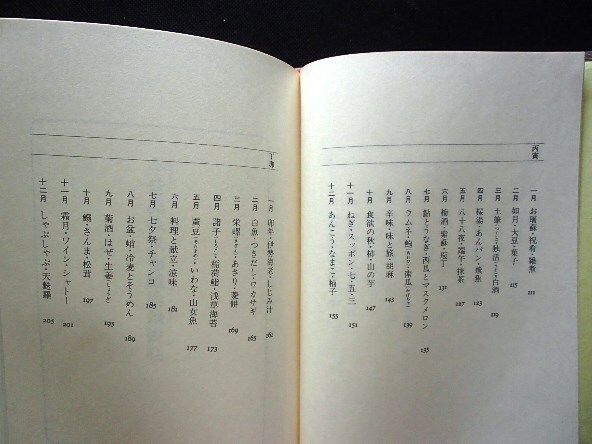 丙寅
一月 お屠蘇・祝肴・雑煮 111
二月 如月・大豆・菓子 115
三月 土筆・独活・白酒 119
四月 桜湯・あんパン・
五月 八十八夜・端午・抹茶
六月 梅酒・紫蘇・庖丁 131
七月 鮎とうなぎ・西瓜とマスクメロン 135
八月 ラムネ・鮑・南瓜 139
九月 辛味・味と旅・胡麻 143
十月 食欲の秋・柿・山の芋 147
十一月 ねぎ・スッポン・七・五・三 151
十二月 あんこう・なまこ・柚子 155
丁卯
一月 卯年・伊勢海老・しじみ汁 161
二月 白魚・つきだし・ワカサギ 165
三月 栄螺・あさり・菱餅 169
四月 諸子・稲荷鮨・浅草海苔 173
五月 蚕豆・いわな・山女魚 177
六月 料理と献立・滋味 181
七月 七夕祭・チャンコ 185
八月 お盆・蛸・冷麦とそうめん 189
九月 菊酒・はぜ・生姜 193
十月 鰯・さんま・松茸 197
十一月 霜月・ワイン・シャトー 201
十二月 しゃぶしゃぶ・天麩羅 205